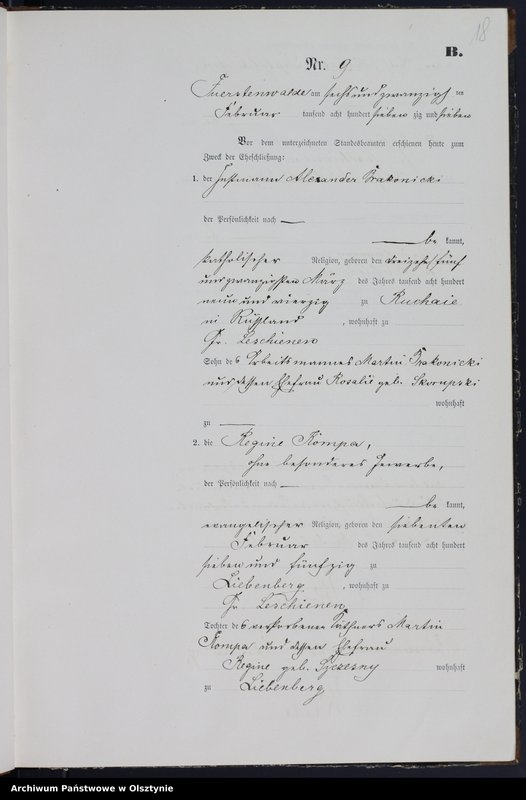 18
B.
Nr. 9
Fuerstenwalde am sechs und zwanzigsten
Februar tausend acht hundert sieben zig und sieben
Vor dem unterzeichneten Standesbeamten erschienen heute zum
Zweck der Eheschließung:
1. der Instmann Alexander
der Persönlichkeit nach —
— be kannt,
katholischer Religion, geboren den fünf
und zwanzigsten März des Jahres tausend acht hundert
neun und vierzig zu Ruchaie
in Russland, wohnhaft zu
Gr. Leschienen
Sohn des Arbeitsmannes Martin
und dessen Ehefrau Rosalie geb. Skorupski
wohnhaft
zu —
2. die Regine Kompa,
ohne besonderes Gewerbe,
der Persönlichkeit nach —
— be kannt,
evangelischer Religion, geboren den siebenten
Februar des Jahres tausend acht hundert
sieben und fünfzig zu
Liebenberg, wohnhaft zu
Gr. Leschienen
Tochter des verstorbenen Käthners Martin
Kompa und dessen Ehefrau
Regine geb. Szczesny wohnhaft
zu Liebenberg
Archiwum Państwowe w Olsztynie